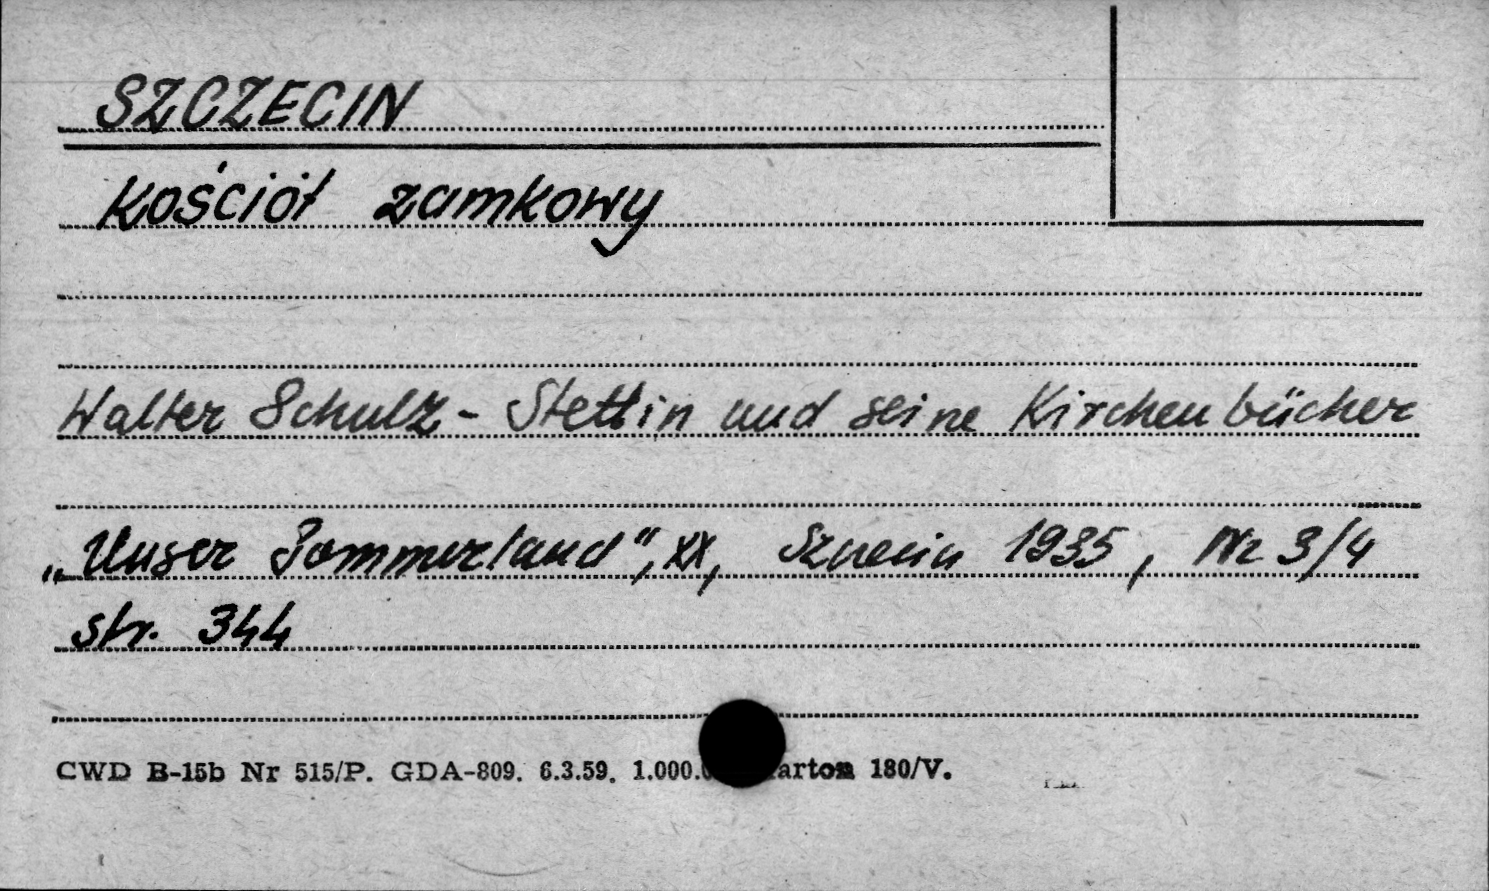 SZCZECIN
Kościół zamkowy
Walter Schulz - Stettin und seine Kirchenbücher
„Unser Pommerland", XX, Szczecin 1935, Nr 3/4
str. 344
CWD B-15b Nr 515/P. GDA-809. 6.3.59. 1.000. arton 180/V.